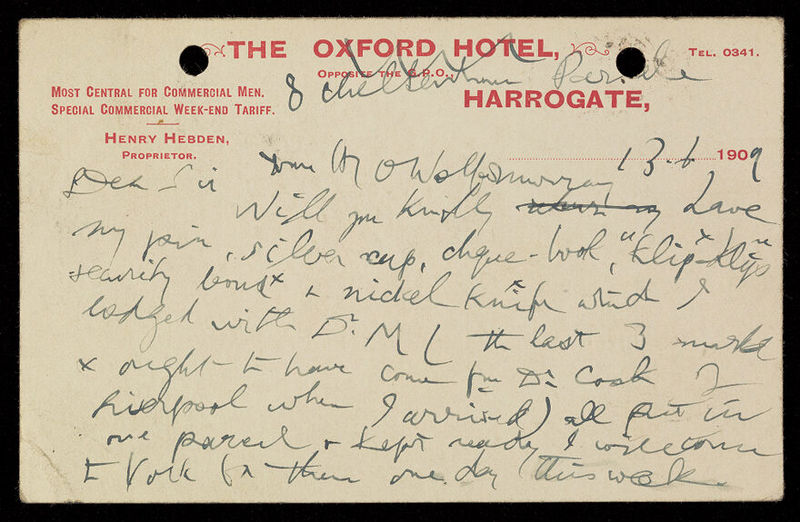 THE OXFORD HOTEL,
TEL. 0341.
OPPOSITE THE G.P.O.,
8 Cheltenham Parade
MOST CENTRAL FOR COMMERCIAL MEN.
SPECIAL COMMERCIAL WEEK-END TARIFF.
HARROGATE,
HENRY HEBDEN,
PROPRIETOR.
13.6.1909
Dear Sir
Will you kindly have
my pin, silver cup, cheque-book, "Klip-Klip"
security bond x & nickel knife x which I
lodged with Dr. M ( the last 3 marked
x ought to have come from Dr. Cook of
Liverpool when I arrived) all put in
one parcel & kept ready I will come
to York for them one day this week.